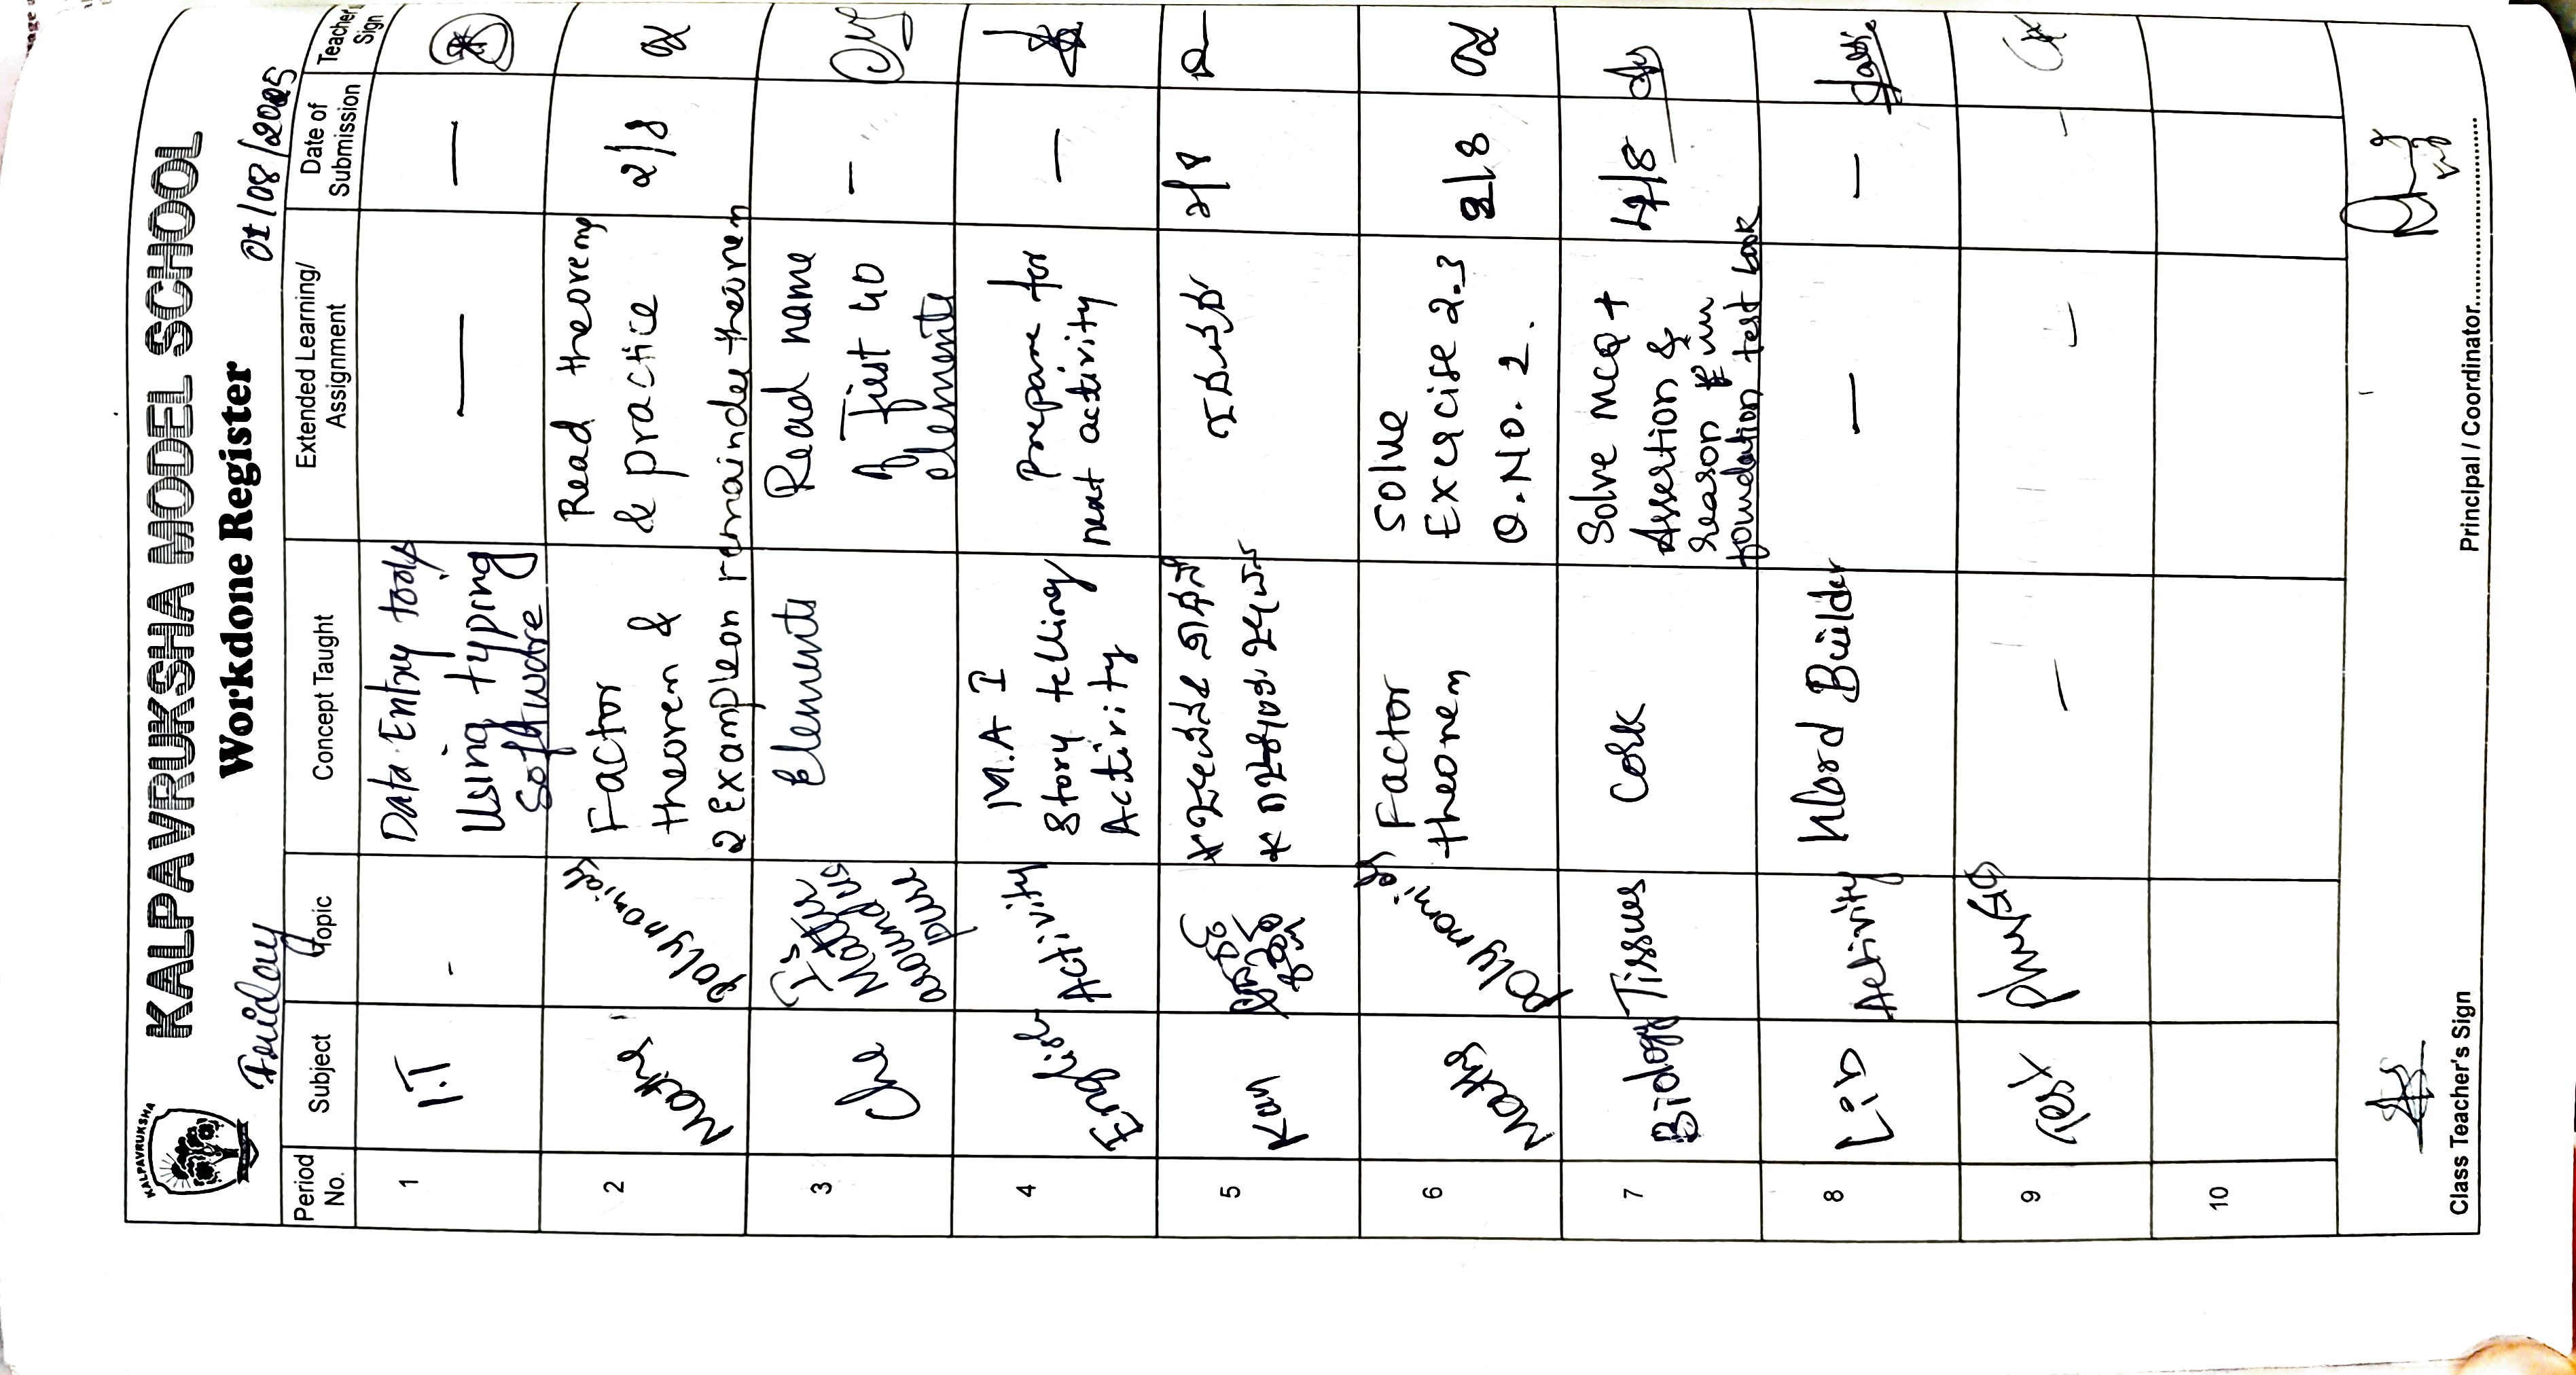 KALPAVRUKSHA
KALPAVRUKSHA MODEL SCHOOL
Workdone Register
Friday
01/08/2025
Period No.
Subject
Topic
Concept Taught
Extended Learning/ Assignment
Date of Submission
Teacher Sign
1
I.T
-
Data Entry tools
Using typing
Software
—
—
2
Maths
Polynomials
Factor
theorem &
2 Example on remainder theorem
Read theorem
& practice
2/8
3
Che
Is
Matter
around us
pure
Elements
Read name
of first 40
elements
-
4
English
Activity
M.A I
Story telling
Activity
Prepare for
next activity
—
5
Kan
2/8
6
Maths
Polynomials
Factor
theorem
Solve
Exercise 2.3
Q.NO. 2.
2/8
7
Biology
Tissues
Cork
Solve MCQ +
Assertion &
reason in
foundation test book
4/8
8
Lib
Activity
Word Builder
—
—
9
—
-
-
10
Class Teacher's Sign
Principal / Coordinator